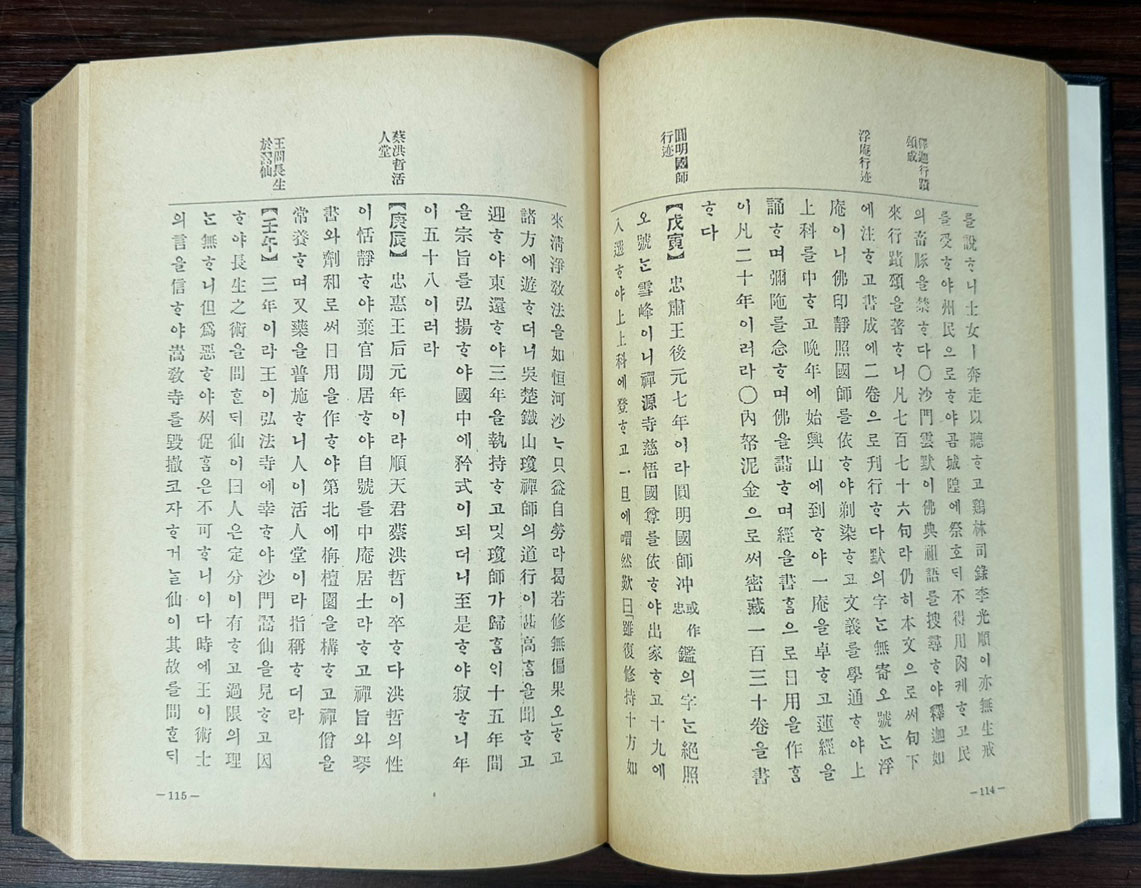 釋迦行蹟
頌成
浮庵行迹
圓明國師
行迹
를說ᄒᆞ니士女ㅣ奔走以聽ᄒᆞ고鷄林司錄李光順이亦無生戒
를受ᄒᆞ야州民으로ᄒᆞ야곰城隍에祭호ᄃᆡ不得用肉케ᄒᆞ고民
의畜豚을禁ᄒᆞ다○沙門雲默이佛典祖語를搜尋ᄒᆞ야釋迦如
來行蹟頌을著ᄒᆞ니凡七百七十六句라仍히本文으로써句下
에注ᄒᆞ고書成에二卷으로刊行ᄒᆞ다默의字ᄂᆞᆫ無寄오號ᄂᆞᆫ浮
庵이니佛印靜照國師를依ᄒᆞ야剃染ᄒᆞ고文義를學通ᄒᆞ야上
上科를中ᄒᆞ고晩年에始興山에到ᄒᆞ야一庵을卓ᄒᆞ고蓮經을
誦ᄒᆞ며彌陁를念ᄒᆞ며佛을畵ᄒᆞ며經을書홈으로日用을作홈
이凡二十年이러라○內帑泥金으로써密藏一百三十卷을書
ᄒᆞ다
【戊寅】 忠肅王後元七年이라圓明國師冲或作忠鑑의字ᄂᆞᆫ絕照
오號ᄂᆞᆫ雪峰이니禪源寺慈悟國尊를依ᄒᆞ야出家ᄒᆞ고十九에
入選ᄒᆞ야上上科에登ᄒᆞ고一旦에喟然歎曰「雖復修持十方如
—114—
蔡洪哲活
人堂
王問長生
於翯仙
來淸淨敎法을如恒河沙ᄂᆞᆫ只益自勞라曷若修無偏果오」ᄒᆞ고
諸方에遊ᄒᆞ더니吳楚鐵山瓊禪師의道行이甚高홈을聞ᄒᆞ고
迎ᄒᆞ야東還ᄒᆞ야三年을執持ᄒᆞ고밋瓊師가歸홈ᄋᆡ十五年間
을宗旨를弘揚ᄒᆞ야國中에矜式이되더니至是ᄒᆞ야寂ᄒᆞ니年
이五十八이러라
【庚辰】 忠惠王后元年이라順天君蔡洪哲이卒ᄒᆞ다洪哲의性
이恬靜ᄒᆞ야棄官閒居ᄒᆞ야自號를中庵居士라ᄒᆞ고禪旨와琴
書와劑和로써日用을作ᄒᆞ야第北에栴檀園을構ᄒᆞ고禪僧을
常養ᄒᆞ며又藥을普施ᄒᆞ니人이活人堂이라指稱ᄒᆞ더라
【壬午】 三年이라王이弘法寺에幸ᄒᆞ야沙門翯仙을見ᄒᆞ고因
ᄒᆞ야長生之術을問ᄒᆞᆫᄃᆡ仙이曰人은定分이有ᄒᆞ고過限의理
ᄂᆞᆫ無ᄒᆞ니但爲惡ᄒᆞ야써促홈은不可ᄒᆞ니이다時에王이術士
의言을信ᄒᆞ야嵩敎寺를毁撤코자ᄒᆞ거ᄂᆞᆯ仙이其故를問ᄒᆞᆫᄃᆡ
—115—